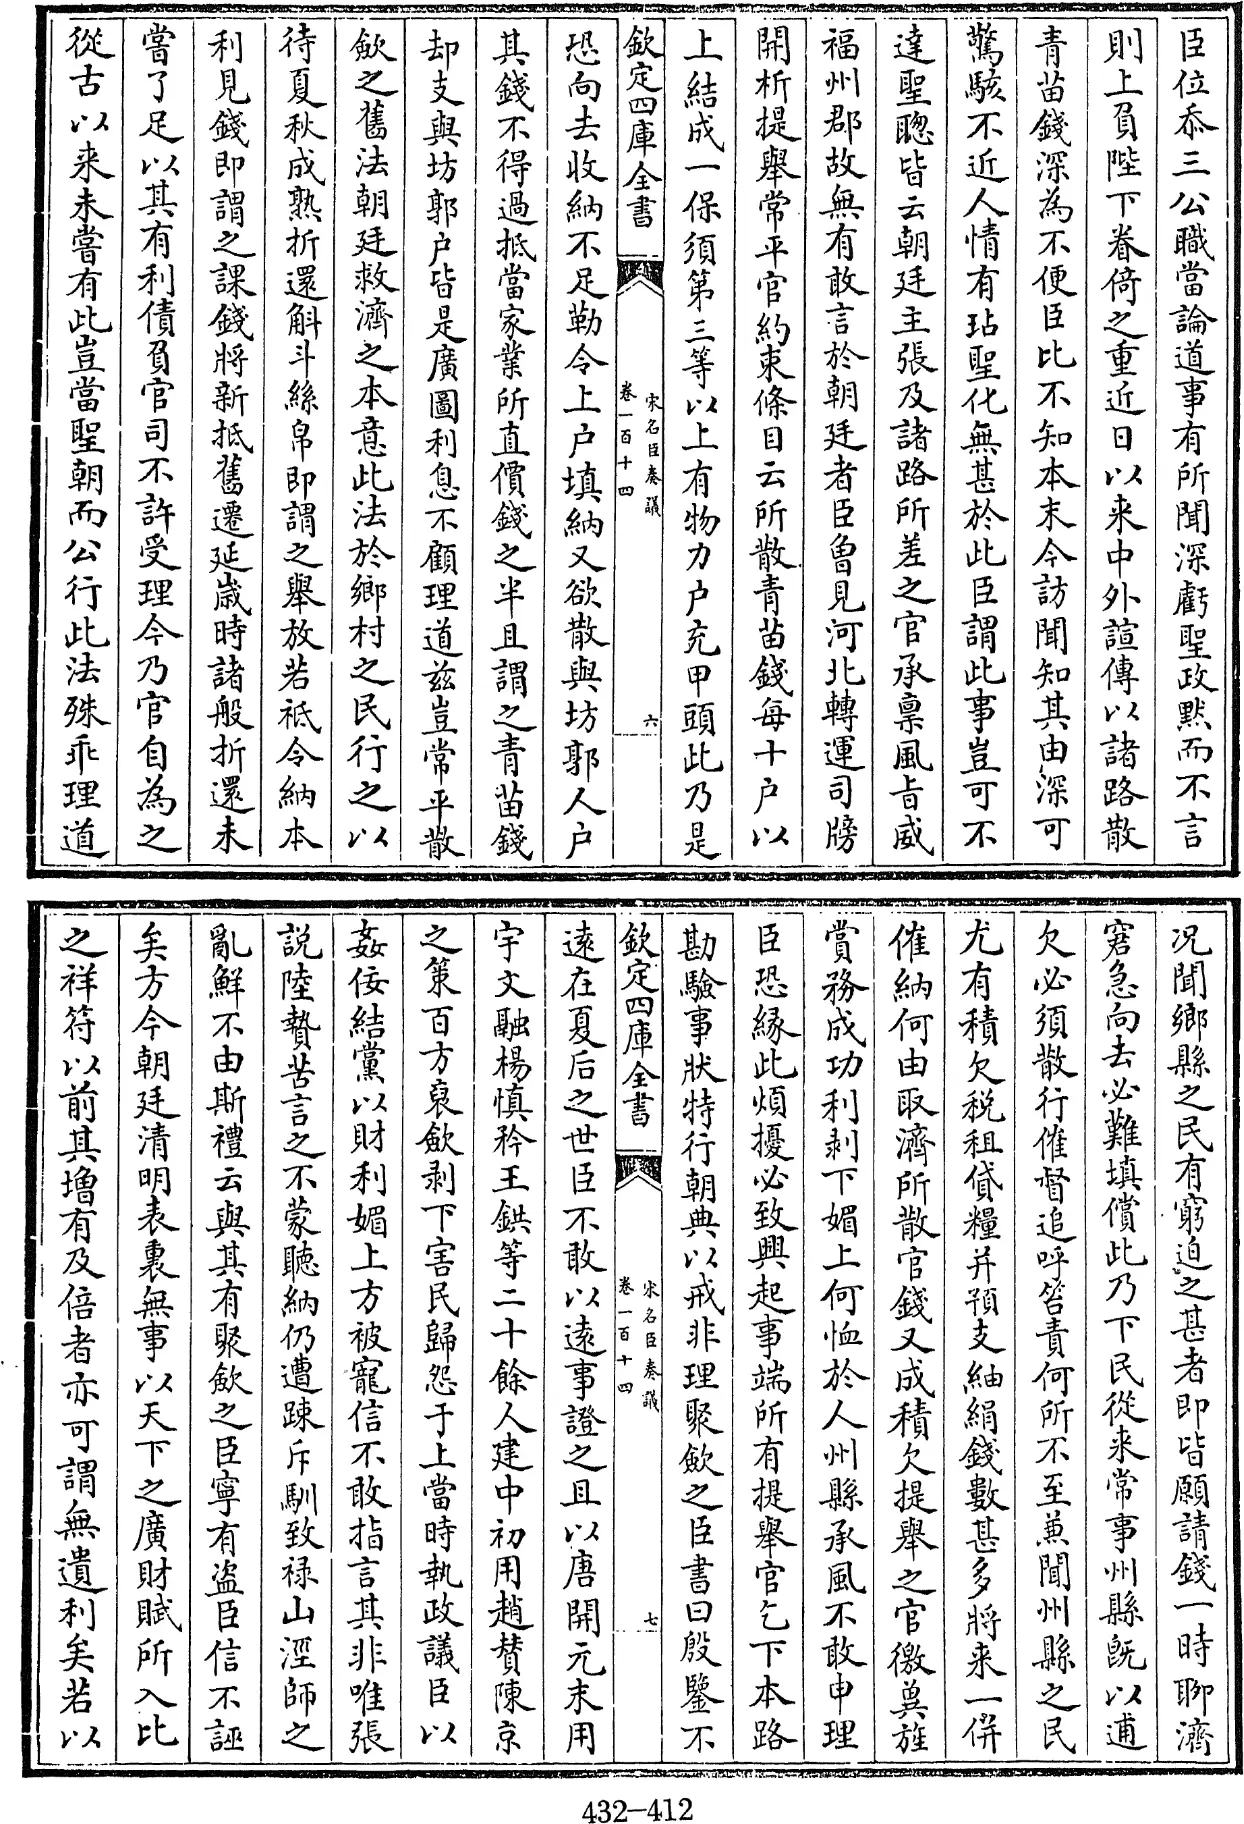 臣位忝三公職當論道事有所聞深虧聖政黙而不言
則上負陛下眷倚之重近日以來中外諠傳以諸路散
青苗錢深為不便臣比不知本末今訪聞知其由深可
驚駭不近人情有玷聖化無甚於此臣謂此事豈可不
達聖聰皆云朝廷主張及諸路所差之官承禀風旨威
福州郡故無有敢言於朝廷者臣曾見河北轉運司牓
開析提舉常平官約束條目云所散青苗錢每十户以
上結成一保須第三等以上有物力户充甲頭此乃是
欽定四庫全書
宋名臣奏議
卷一百十四
六
恐向去收納不足勒令上户填納又欲散與坊郭人户
其錢不得過抵當家業所直價錢之半且謂之青苗錢
却支與坊郭户皆是廣圖利息不顧理道兹豈常平散
斂之舊法朝廷救濟之本意此法於鄉村之民行之以
待夏秋成熟折還斛斗絲帛即謂之舉放若祗令納本
利見錢即謂之課錢將新抵舊遷延歲時諸般折還未
嘗了足以其有利債負官司不許受理今乃官自為之
從古以來未嘗有此豈當聖朝而公行此法殊乖理道
況聞鄉縣之民有窮迫之甚者即皆願請錢一時聊濟
窘急向去必難填償此乃下民從來常事州縣既以逋
欠必須散行催督追呼笞責何所不至兼聞州縣之民
尤有積欠税租貸糧并預支紬絹錢數甚多將來一併
催納何由取濟所散官錢又成積欠提舉之官徼㒷旌
賞務成功利剥下媚上何恤於人州縣承風不敢申理
臣恐緣此煩擾必致興起事端所有提舉官乞下本路
勘驗事狀特行朝典以戒非理聚斂之臣書曰殷鑒不
欽定四庫全書
宋名臣奏議
卷一百十四
七
遠在夏后之世臣不敢以遠事證之且以唐開元末用
宇文融楊慎矜王鉷等二十餘人建中初用趙贊陳京
之策百方裒斂剥下害民歸怨于上當時執政議臣以
姦佞結黨以財利媚上方被寵信不敢指言其非唯張
說陸贄苦言之不蒙聽納仍遭踈斥馴致禄山涇師之
亂鮮不由斯禮云與其有聚斂之臣寧有盜臣信不誣
矣方今朝廷清明表裏無事以天下之廣財賦所入比
之祥符以前其增有及倍者亦可謂無遺利矣若以
432-412